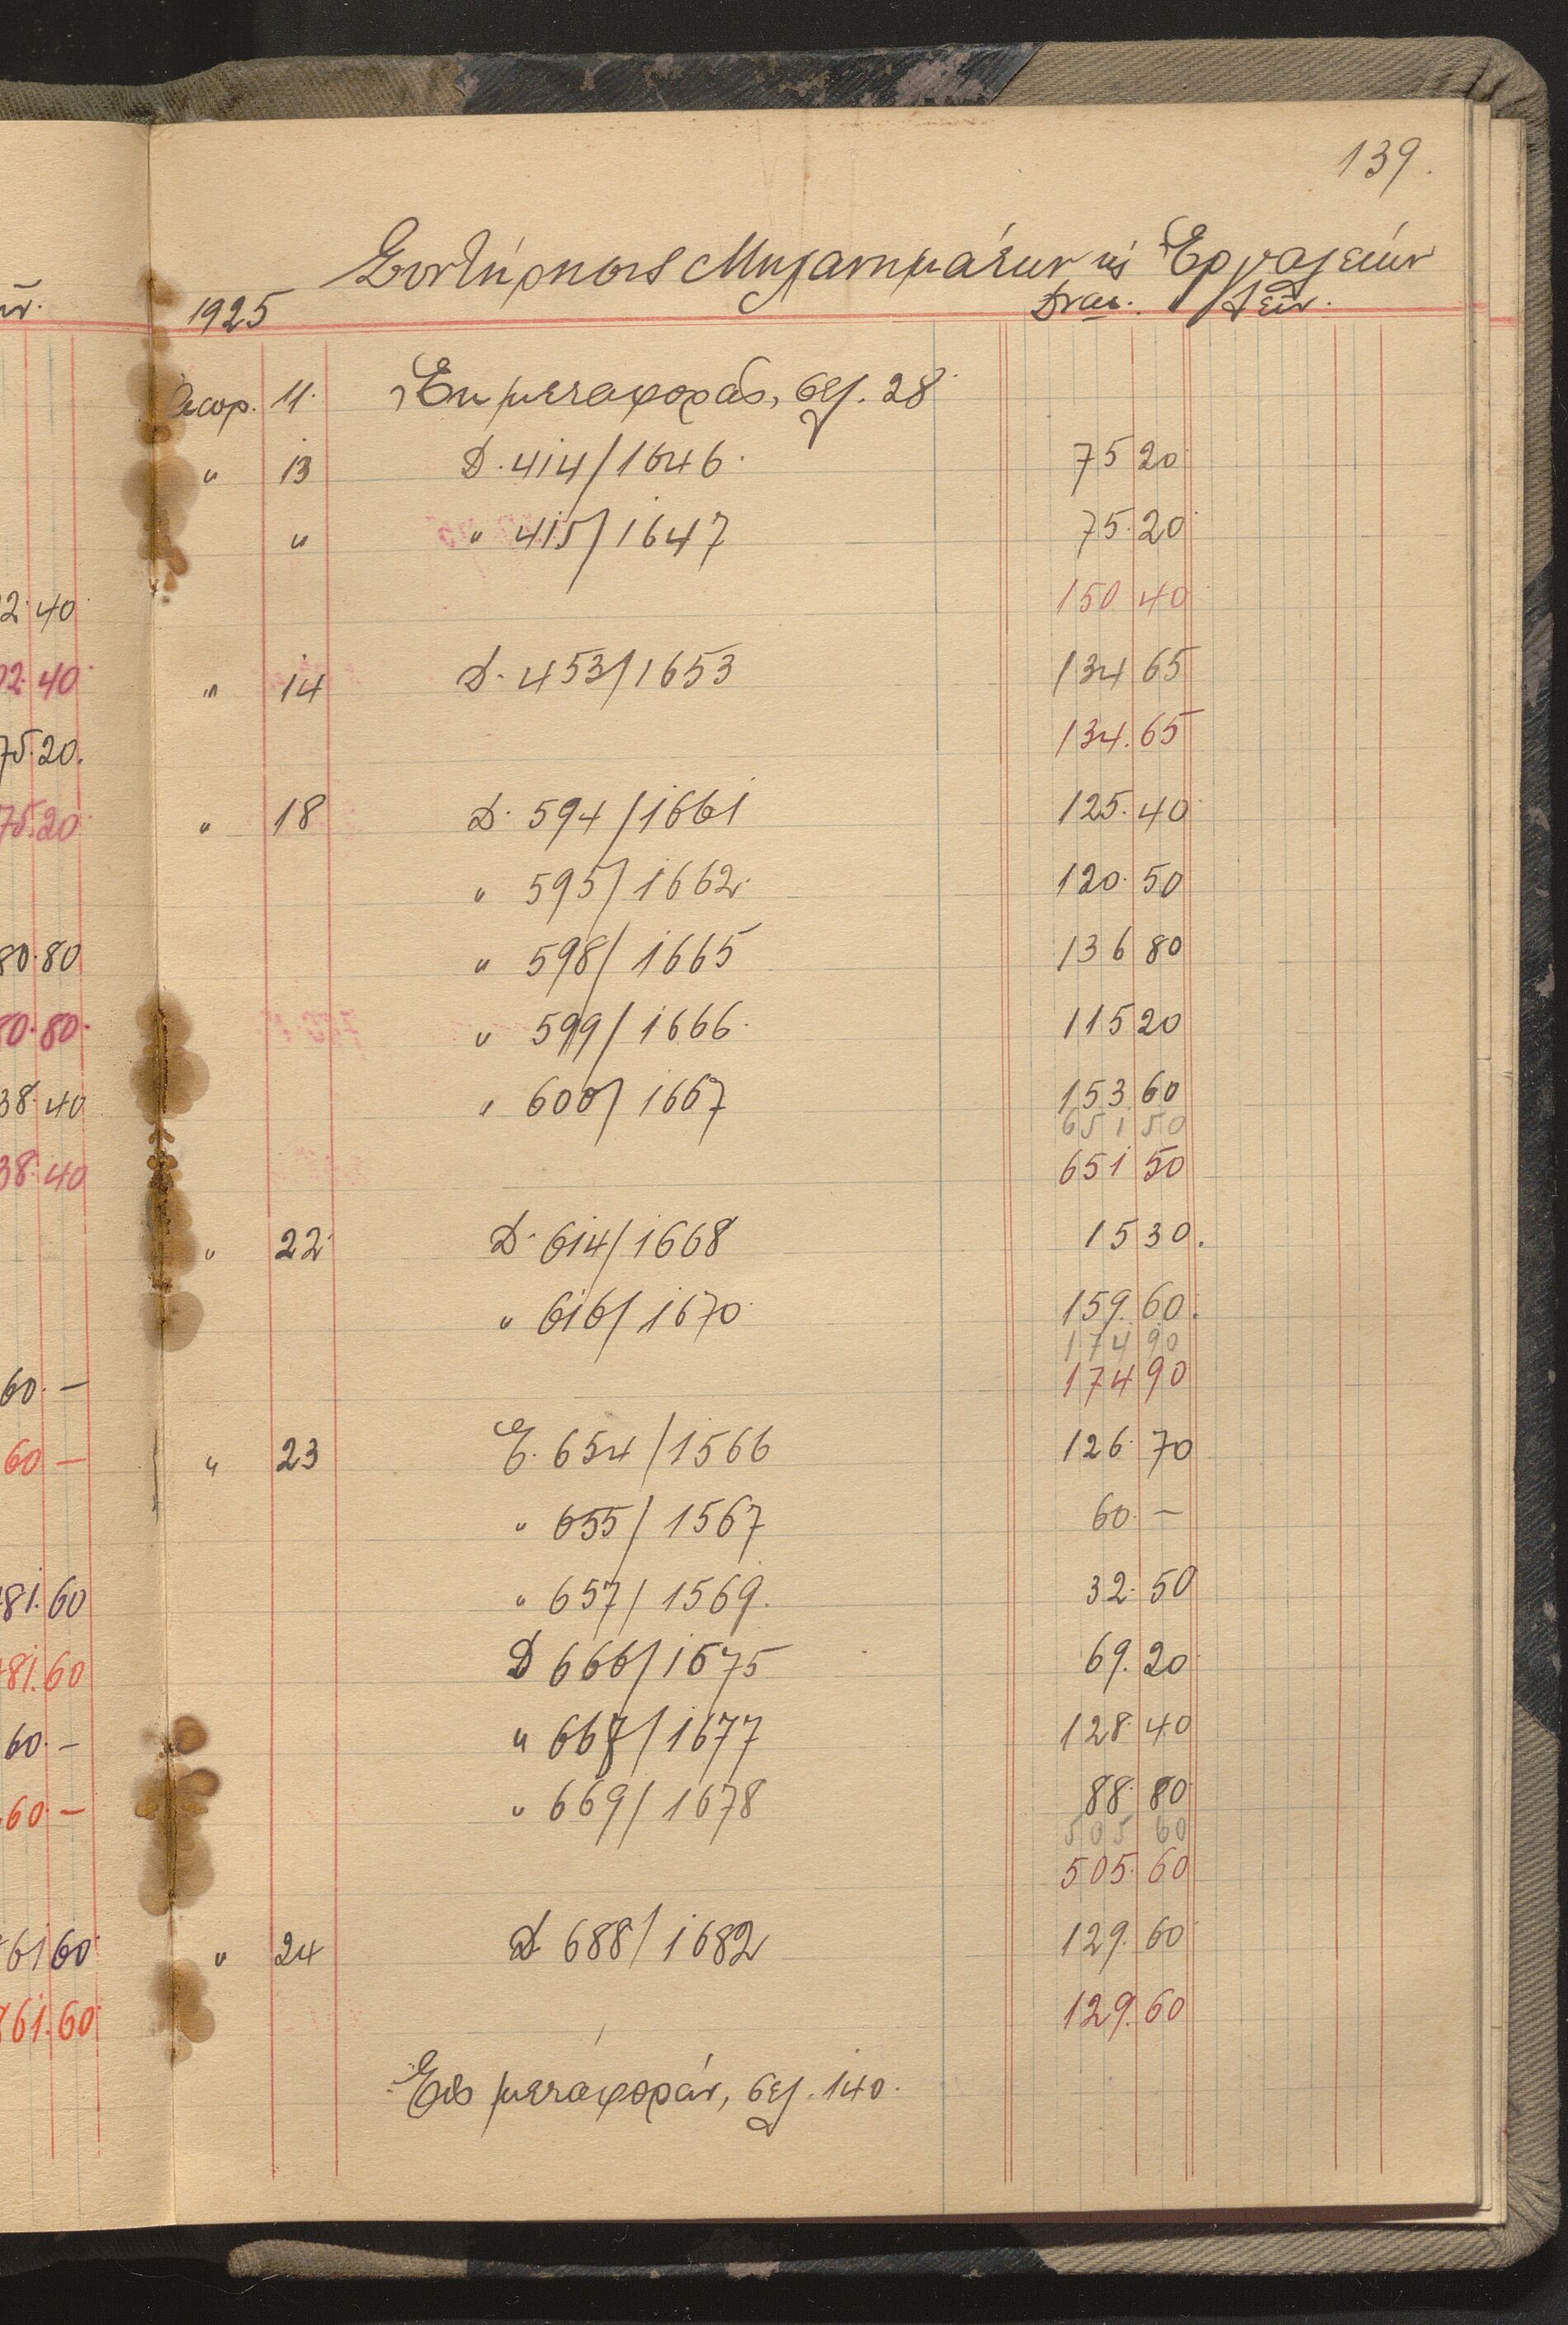 139.
Συντήρησις Μηχανημάτων κ' Ἐργαλείων
1925 Δραχ. Λεπ.
11. Ἐκ μεταφορᾶς, σελ. 28
" 13 D. 414/1646. 75 20
" " 415/1647 75.20
150 40
" 14 D. 453/1653 134 65
134.65
" 18 D. 594/1661 125.40
" 595/1662. 120.50
" 598/1665 136 80
" 599/1666. 115 20
" 600/1667 153 60
651 50
651 50
" 22 D. 614/1668 15 30.
" 616/1670 159.60.
174 90
174 90
" 23 E. 654/1566 126.70
" 655/1567 60.—
" 657/1569. 32.50
D 666/1675 69.20
" 668/1677 128.40
" 669/1678 88.80
505 60
505.60
" 24 D 688/1682 129.60
129.60
Εἰς μεταφοράν, σελ. 140.
2.40
02.40
75.20.
75.20
80.80
80.80.
38.40
38.40
60.—
60—
81.60
81.60
60.—
60.—
61 60
61.60